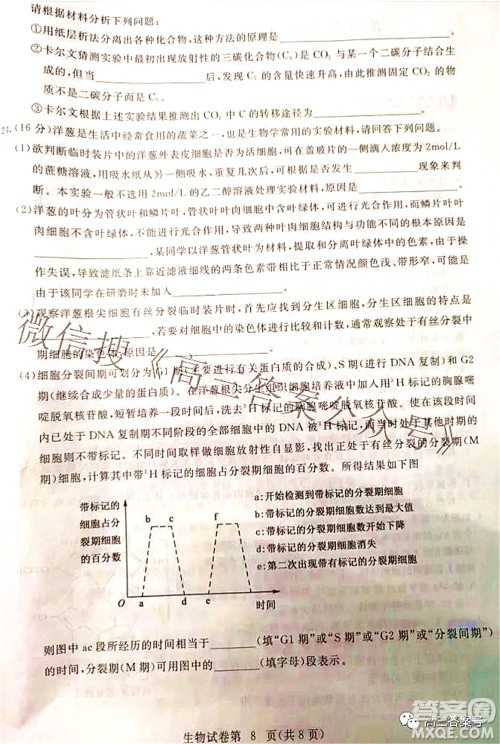 请根据材料分析下列问题：
①用纸层析法分离出各种化合物，这种方法的原理是。
②卡尔文猜测实验中最初出现放射性的三碳化合物(C₃)是 CO₂ 与某一个二碳分子结合生
成的，但当后，发现 C₅ 的含量快速升高，由此推测固定 CO₂ 的物
质不是二碳分子而是 C₅。
③卡尔文根据上述实验结果推测出 CO₂ 中 C 的转移途径为。
24.(16 分)洋葱是生活中经常食用的蔬菜之一，也是生物学常用的实验材料，请回答下列问题。
(1)欲判断临时装片中的洋葱外表皮细胞是否为活细胞，可在盖玻片的一侧滴入浓度为 2mol/L
的蔗糖溶液，用吸水纸从另一侧吸水，重复几次后，可根据是否发生现象来判
断。本实验一般不选用 2mol/L 的乙二醇溶液处理实验材料，原因是。
(2)洋葱的叶分为管状叶和鳞片叶，管状叶的叶肉细胞中含叶绿体，可进行光合作用，而鳞片叶叶
肉细胞不含叶绿体，不能进行光合作用，导致两种叶肉细胞结构与功能不同的根本原因是
，某同学以洋葱管状叶为材料，提取和分离叶绿体中的色素，由于操
作失误，导致滤纸条上靠近滤液细线的两条色素带相比于正常情况颜色浅、带形窄，可能是
由于该同学在研磨时未加入。
(3)观察洋葱根尖细胞有丝分裂临时装片时，首先应找到分生区细胞，分生区细胞的特点是
，若要对细胞中的染色体进行比较和计数，通常观察处于有丝分裂中
期细胞的染色体，原因
(4)细胞分裂间期可划分为 G1 期(主要进行有关蛋白质的合成)、S 期(进行 DNA 复制)和 G2
期(继续合成少量的蛋白质)。在洋葱根尖分生组织细胞培养液中加人用³H 标记的胸腺嘧
啶脱氧核苷酸，短暂培养一段时间后，洗去含³H 标记的胸腺嘧啶脱氧核苷酸，使这段时间
内已处于 DNA 复制期不同阶段的全部细胞中的 DNA 被³H 标记，而当时处于其他时期的
细胞则不带标记。不同时间取样做细胞放射性自显影，找出正处于有丝分裂的分裂期(M
期)细胞，计算其中带³H 标记的细胞占分裂期细胞的百分数。所得结果如下图
带标记的
细胞占分
裂期细胞
的百分数
b c f
O a d e 时间
a:开始检测到带标记的分裂期细胞
b:带标记的分裂期细胞数达到最大值
c:带标记的分裂期细胞数开始下降
d:带标记的分裂期细胞消失
e:第二次出现带有标记的分裂期细胞
则图中 ac 段所经历的时间相当于(填“G1 期”或“S 期”或“G2 期”或“分裂间期”)
的时间，分裂期(M 期)可用图中的(填字母)段表示。
生物试卷第 8 页(共 8 页)
微信搜《高三答案公众号》
高三答案号